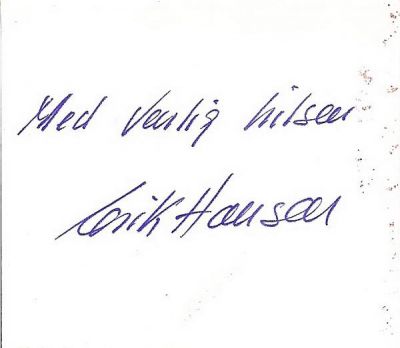 Med venlig hilsen
Erik Hansen